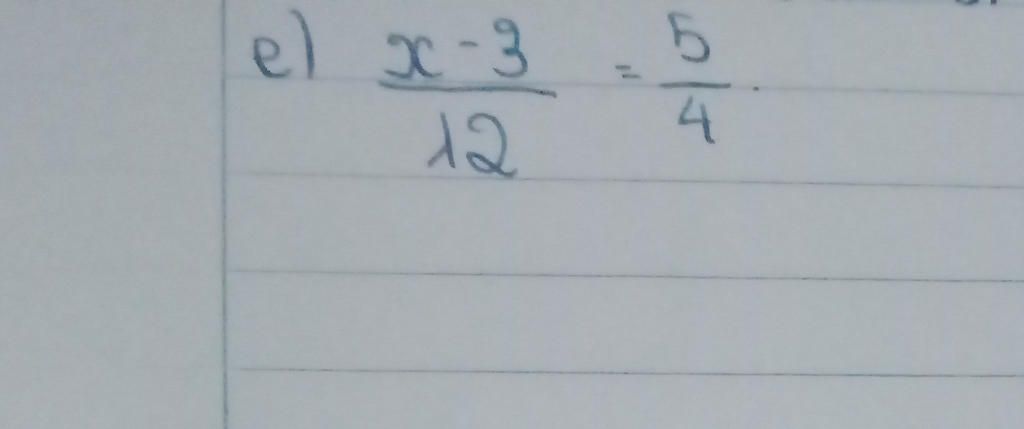 e) x - 3 / 12 = 5 / 4 .